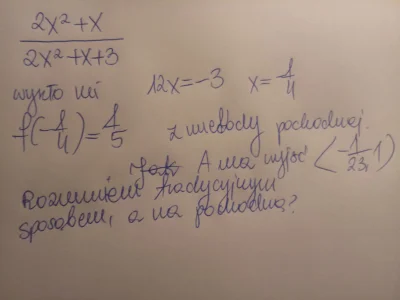 2x²+x
2x²+x+3
wyszło mi 12x=-3 x=1/4
f(-1/4)=1/5 z metody pochodnej.
A ma wyjść <-1/23, 1)
Rozumiem tradycyjnym
sposobem, a na pochodną?